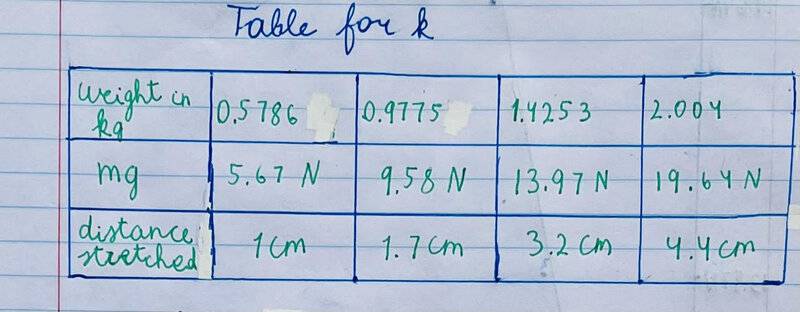 Table for k
weight in kg 0.5786 0.9775 1.4253 2.004
mg 5.67 N 9.58 N 13.97 N 19.64 N
distance stretched 1 cm 1.7 cm 3.2 cm 4.4 cm